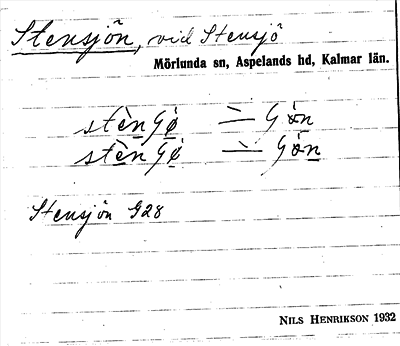 Stensjön, vid Stensjö
Mörlunda sn, Aspelands hd, Kalmar län.
stènGǿ — Gǿn
stènGǿ — Gǿn
Stensjön G28
NILS HENRIKSON 1932